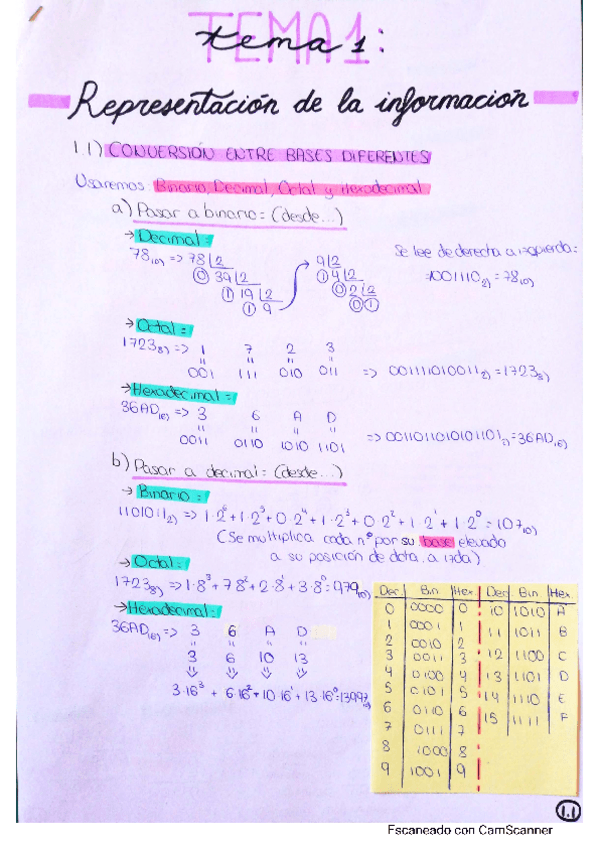 TEMA 1:
tema 1:
Representación de la información
1.1) CONVERSIÓN ENTRE BASES DIFERENTES
Usaremos: Binario, Decimal, Octal y Hexadecimal
a) Pasar a binario: (desde...)
→ Decimal:
78₁₀) => 78 | 2
0 39 | 2
1 19 | 2
1 9
9 | 2
1 4 | 2
0 2 | 2
0 1
Se lee de derecha a izquierda:
1001110₂) = 78₁₀)
→ Octal:
1723₈) => 1 7 2 3
" " " "
001 111 010 011 => 001111010011₂) = 1723₈)
→ Hexadecimal:
36AD₁₆) => 3 6 A D
" " " "
0011 0110 1010 1101 => 0011011010101101₂) = 36AD₁₆)
b) Pasar a decimal: (desde...)
→ Binario:
1101011₂) => 1·2⁶ + 1·2⁵ + 0·2⁴ + 1·2³ + 0·2² + 1·2¹ + 1·2⁰ = 107₁₀)
(Se multiplica cada nº por su base elevado
a su posición de dcta. a izda)
→ Octal:
1723₈) => 1·8³ + 7·8² + 2·8¹ + 3·8⁰ = 979₁₀)
→ Hexadecimal:
36AD₁₆) => 3 6 A D
" " " "
3 6 10 13
⇓ ⇓ ⇓ ⇓
3·16³ + 6·16² + 10·16¹ + 13·16⁰ = 13997₁₀)
Dec Bin Hex Dec Bin Hex
0 0000 0 10 1010 A
1 0001 1 11 1011 B
2 0010 2 12 1100 C
3 0011 3 13 1101 D
4 0100 4 14 1110 E
5 0101 5 15 1111 F
6 0110 6
7 0111 7
8 1000 8
9 1001 9
1.1
Escaneado con CamScanner